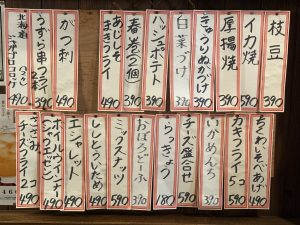 枝豆 390
イカ焼 490
厚揚焼 390
きゅうりぬかづけ 390
白菜づけ 390
ハッシュポテト 390
春巻 2個 390
あじしそまきフライ 490
うずら串フライ 2本 390
がつ刺 490
北海道
490
ちくわいそべあげ 490
カキフライ 5コ 590
いかめんち 390
チーズ盛合せ 590
らっきょう 180
おぼろどうふ 390
ミックスナッツ 590
ししとういため 490
エシャレット 490
ポールウインナー
490
ささみチーズフライ 2コ 490